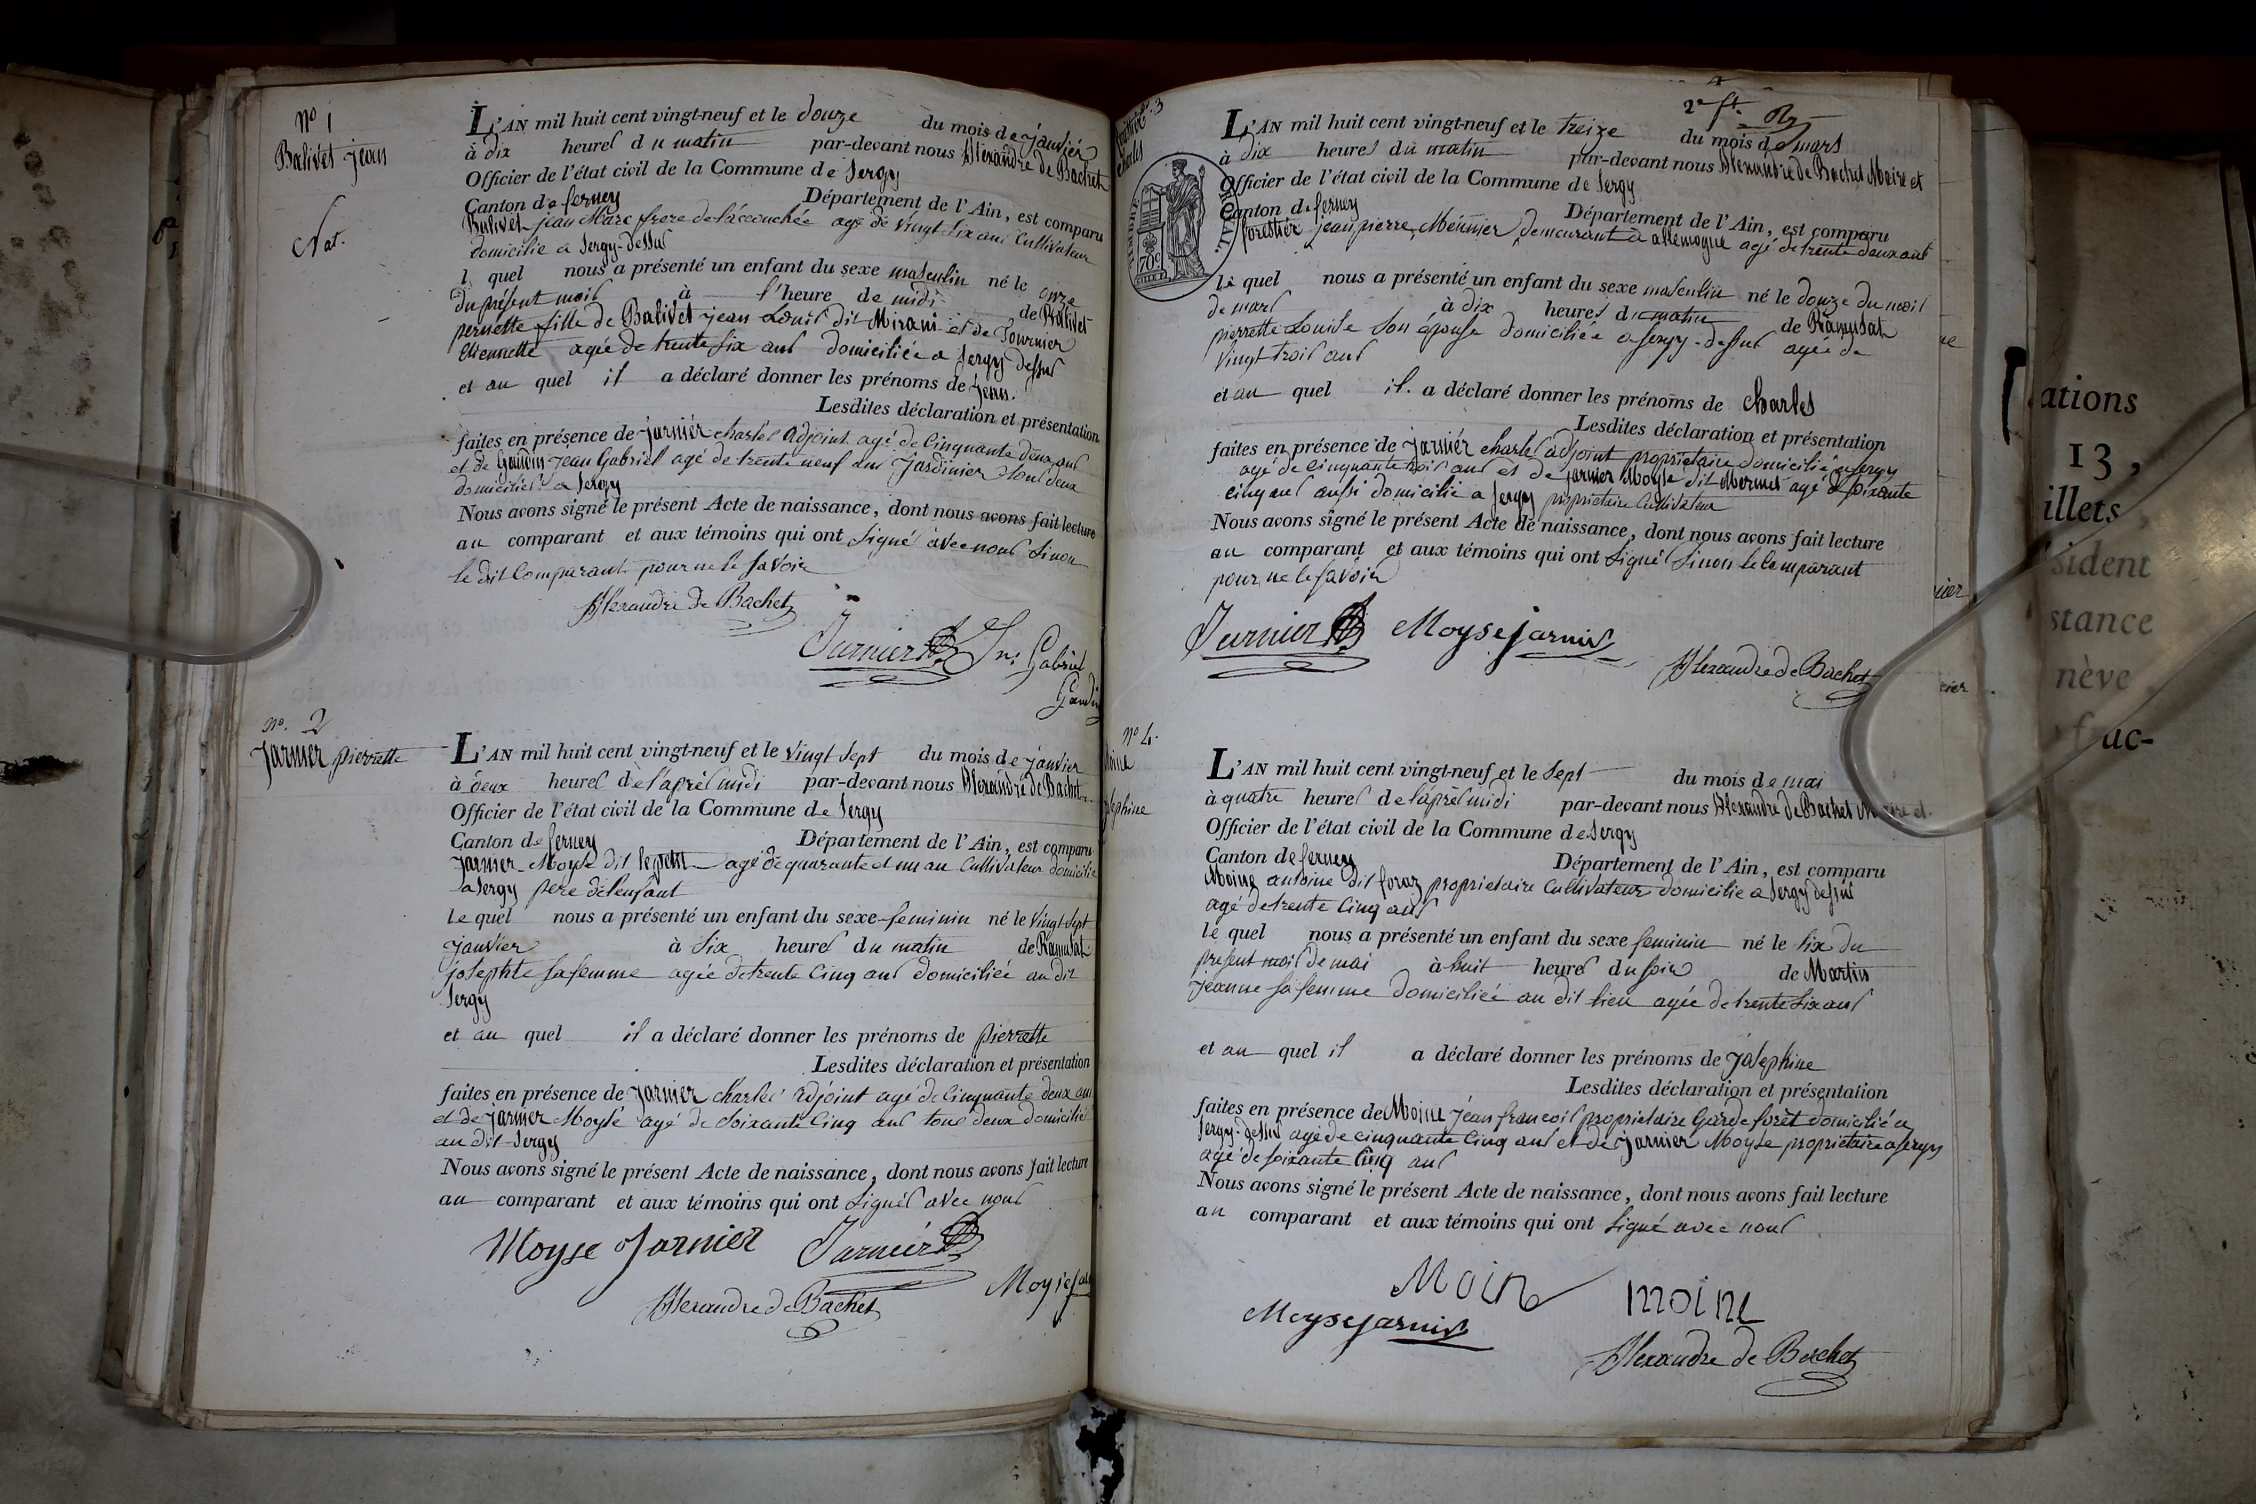 Nº 1
Balivet jean
Nat.
L'AN mil huit cent vingt-neuf et le douze du mois de janvier
à dix heures du matin par-devant nous Alexandre de Bachet
Officier de l'état civil de la Commune de Sergy
Canton de ferney Département de l'Ain, est comparu
Balivet jean Marc frere de l'accouchée agé de vingt six ans Cultivateur
domicilié a Sergy-dessus
l quel nous a présenté un enfant du sexe masculin né le onze
du présent mois à l'heure de midi de Balivet
pernette fille de Balivet jean Louis dit Mirani et de Fournier
Etiennette agée de trente six ans domiciliée a Sergy dessus
et au quel il a déclaré donner les prénoms de jean.
Lesdites déclaration et présentation
faites en présence de jarnier charles adjoint agé de Cinquante deux ans
et de Gaudin jean Gabriel agé de trente neuf ans jardinier tous deux
domiciliés a Sergy
Nous avons signé le présent Acte de naissance, dont nous avons fait lecture
au comparant et aux témoins qui ont signé avec nous sinon
le dit Comparant pour ne le savoir
Alexandre de Bachet
Jarnier
Jn. Gabriel
Gaudin
nº. 2
Jarnier pierrette
L'AN mil huit cent vingt-neuf et le vingt sept du mois de janvier
à deux heures de l'après midi par-devant nous Alexandre de Bachet
Officier de l'état civil de la Commune de Sergy
Canton de ferney Département de l'Ain, est comparu
jarnier Moyse dit lepetit agé de quarante et un an Cultivateur domicilié
a Sergy pere de l'enfant
le quel nous a présenté un enfant du sexe feminin né le vingt sept
janvier à six heures du matin de Ramusat
josephte sa femme agée de trente Cinq ans domiciliée au dit
Sergy
et au quel il a déclaré donner les prénoms de pierrette
Lesdites déclaration et présentation
faites en présence de jarnier charles adjoint agé de Cinquante deux ans
et de jarnier Moyse agé de soixante Cinq ans tous deux domicilié
au dit Sergy
Nous avons signé le présent Acte de naissance, dont nous avons fait lecture
au comparant et aux témoins qui ont signés avec nous
Moyse Jarnier
Jarnier
Alexandre de Bachet
Moyse
3
charles
2e ft.
TIMBRE ROYAL
70c
L'AN mil huit cent vingt-neuf et le treize du mois de mars
à dix heures du matin par-devant nous Alexandre de Bachet Maire et
Officier de l'état civil de la Commune de Sergy
Canton de ferney Département de l'Ain, est comparu
forestier jean pierre Meunier demeurant a allemogne agé de trente deux ans
le quel nous a présenté un enfant du sexe masculin né le douze du mois
de mars à dix heures du matin de Ramusat
pierrette Louise son épouse domiciliée a sergy-dessus agée de
vingt trois ans
et au quel il. a déclaré donner les prénoms de charles
Lesdites déclaration et présentation
faites en présence de jarnier charles adjoint propriétaire domicilié a sergy
agé de cinquante trois ans et de jarnier Moyse dit Mermet agé de soixante
cinq ans aussi domicilié a Sergy propriétaire Cultivateur
Nous avons signé le présent Acte de naissance, dont nous avons fait lecture
au comparant et aux témoins qui ont signé sinon le Comparant
pour ne le savoir
Jarnier
Moyse jarnier
Alexandre de Bachet
nº 4.
Moine
josephine
L'AN mil huit cent vingt-neuf et le sept du mois de mai
à quatre heures de l'après midi par-devant nous Alexandre de Bachet Maire et
Officier de l'état civil de la Commune de Sergy
Canton de ferney Département de l'Ain, est comparu
Moine antoine dit foraz proprietaire Cultivateur domicilié a Sergy dessus
agé de trente Cinq ans
le quel nous a présenté un enfant du sexe feminin né le six du
present mois de mai à huit heures du soir de Martin
jeanne sa femme domiciliée au dit lieu agée de trente six ans
et au quel il a déclaré donner les prénoms de josephine
Lesdites déclaration et présentation
faites en présence de Moine jean francois proprietaire Garde forêt domicilié a
Sergy-dessus agé de cinquante Cinq ans et de jarnier Moyse propriétaire a sergy
agé de soixante Cinq ans
Nous avons signé le présent Acte de naissance, dont nous avons fait lecture
au comparant et aux témoins qui ont signé avec nous
Moine
moine
Moyse jarnier
Alexandre de Bachet
ations
13,
illets,
sident
stance
nève
ac-